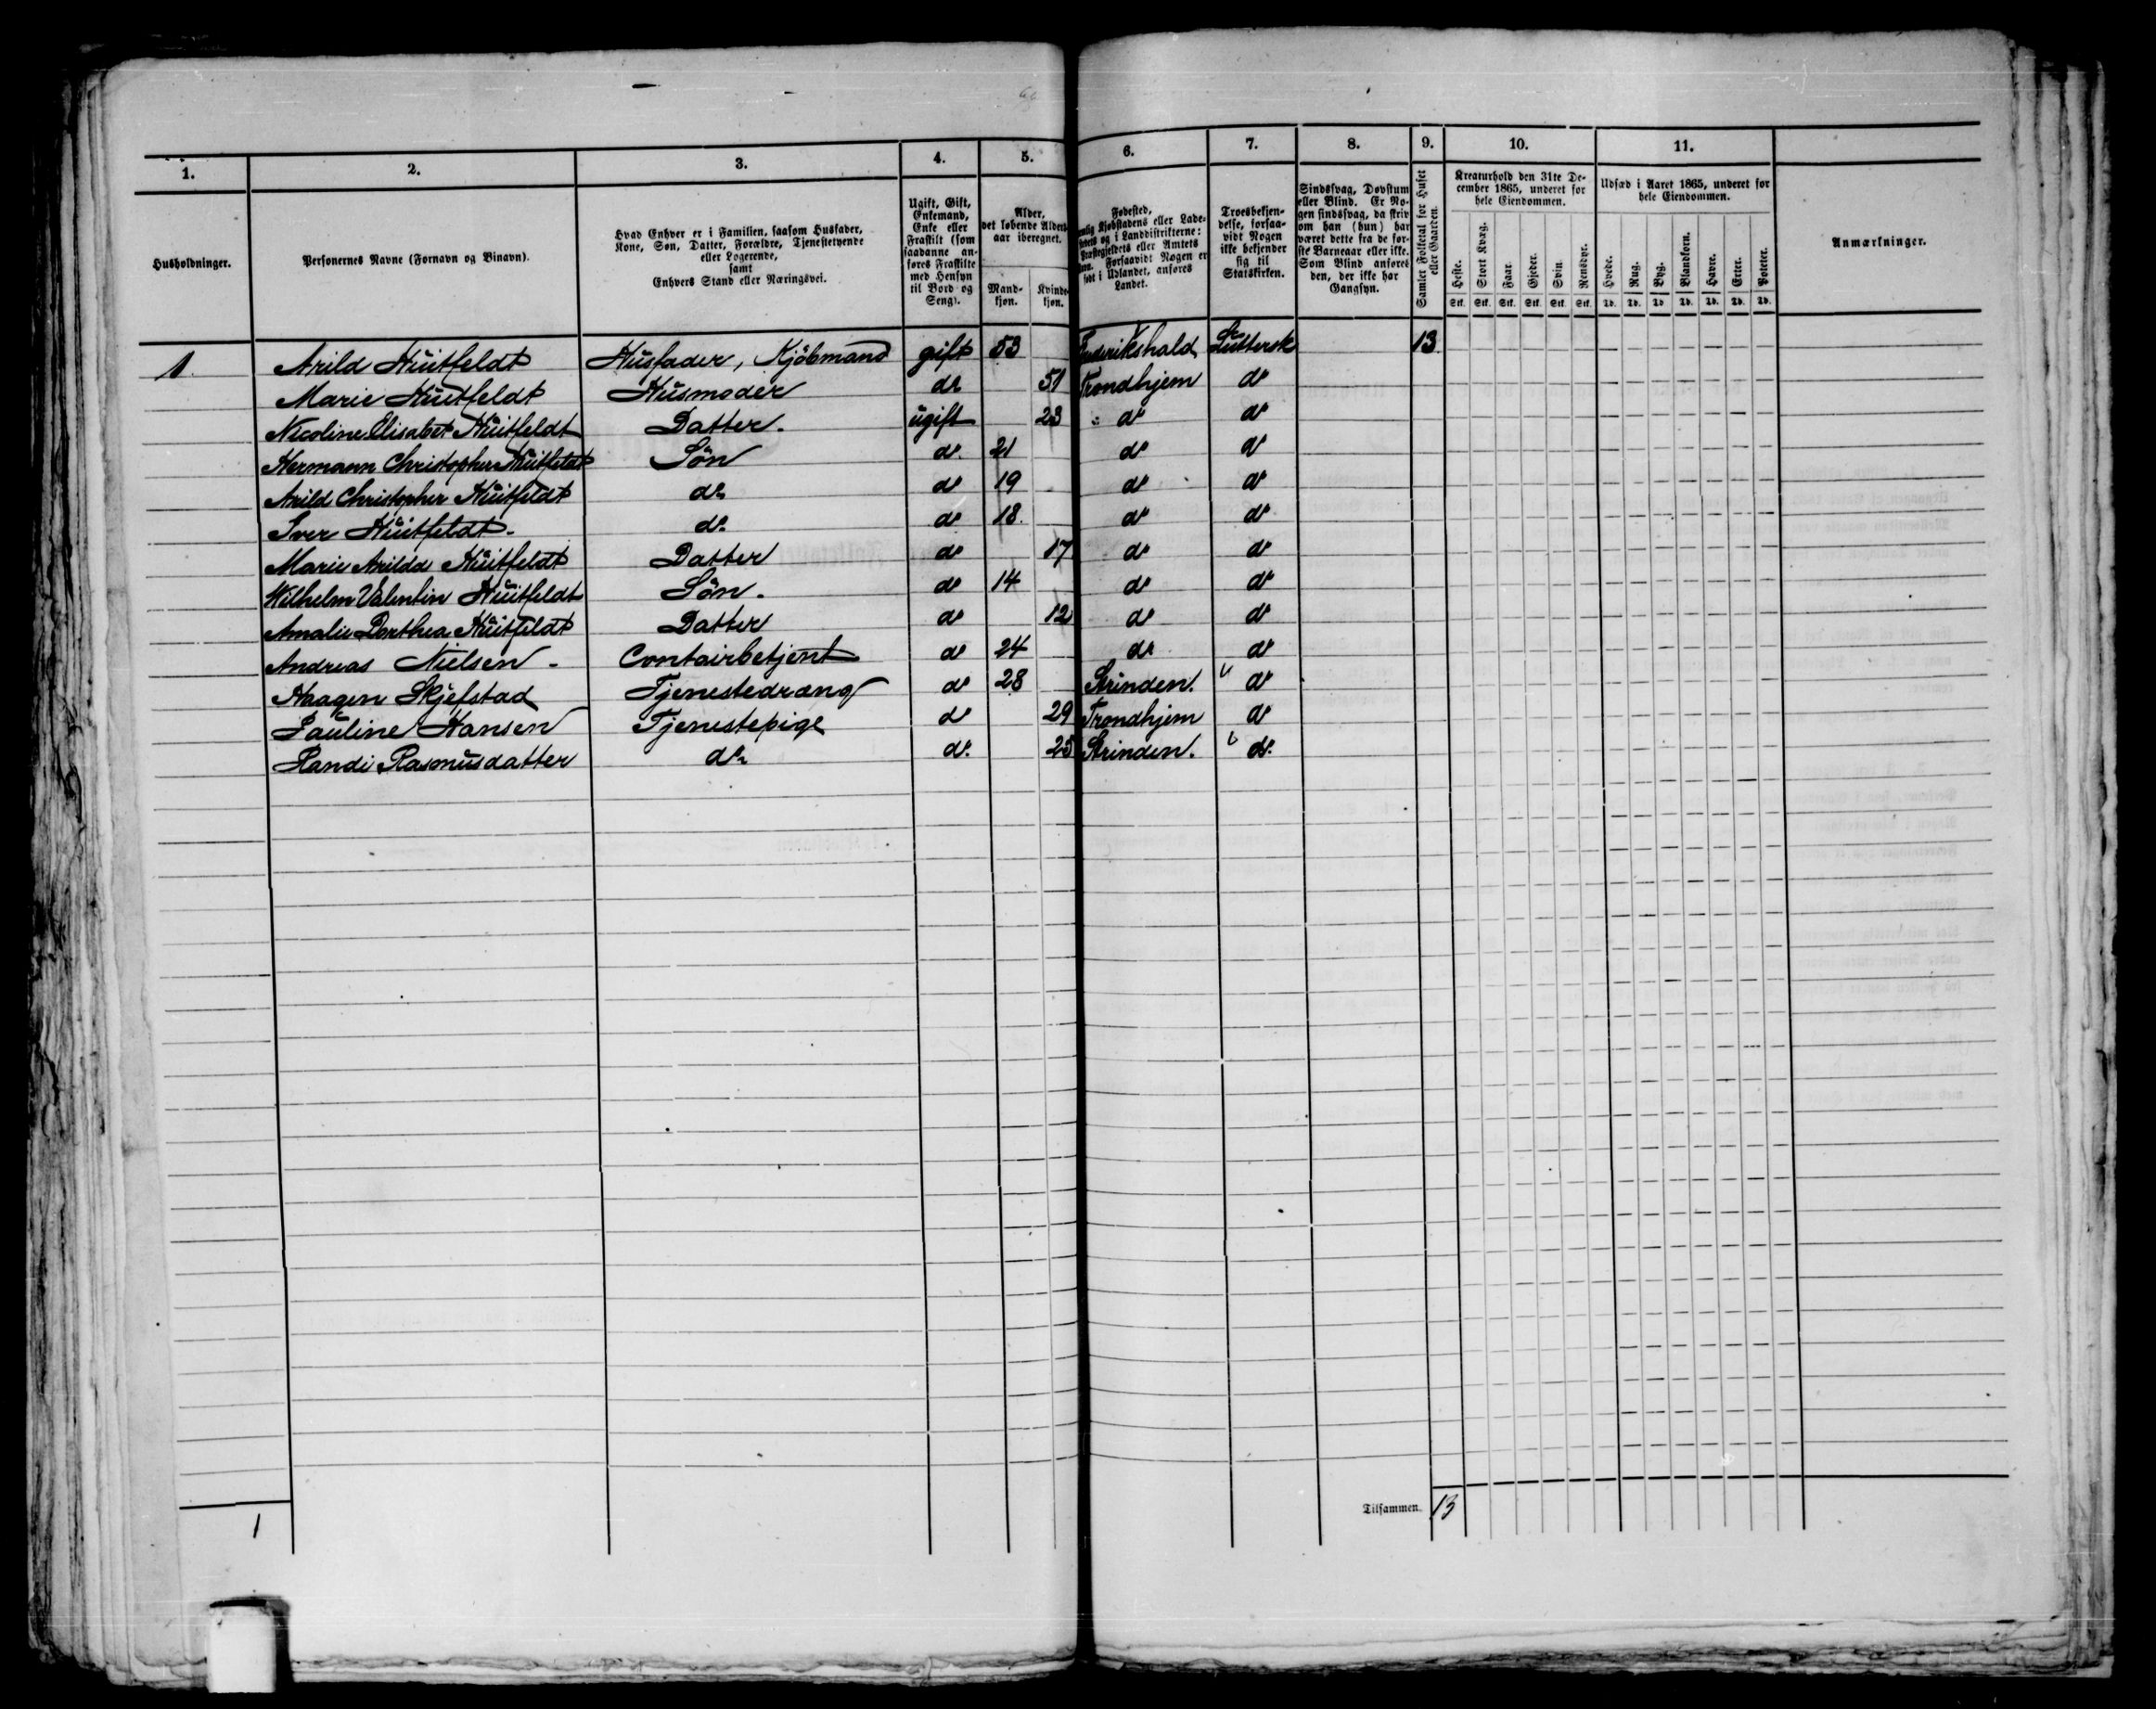 1. 2. 3. 4. 5. 6. 7. 8. 9. 10. 11.
Husholdninger.
Personernes Navne (Fornavn og Binavn).
Hvad Enhver er i Familien, saasom Husfader,
Kone, Søn, Datter, Forældre, Tjenestetyende
eller Logerende,
samt
Enhvers Stand eller Næringsvei.
Ugift, Gift,
Enkemand,
Enke eller
Fraskilt (som
saadanne an-
føres Fraskilte
med Hensyn
til Bord og
Seng).
Alder,
det løbende Alders-
aar iberegnet.
Mand-
kjøn.
Kvinde-
kjøn.
Fødested,
Kjøbstadens eller Lade-
og i Landdistrikterne:
Præstegjeldets eller Amtets
Forsaavidt Nogen er
født i Udlandet, anføres
Landet.
Troesbekjen-
delse, forsaa-
vidt Nogen
ikke bekjender
sig til
Statskirken.
Sindssvag, Døvstum
eller Blind. Er No-
gen sindssvag, da skriv
om han (hun) har
været dette fra de før-
ste Barneaar eller ikke.
Som Blind anføres
den, der ikke har
Gangsyn.
Samlet Folketal for Huset
eller Gaarden.
Kreaturhold den 31te De-
cember 1865, underet for
hele Eiendommen.
Heste. Stort Kvæg. Faar. Gjeder. Svin. Rensdyr.
Stk. Stk. Stk. Stk. Stk. Stk.
Udsæd i Aaret 1865, underet for
hele Eiendommen.
Hvede. Rug. Byg. Blandkorn. Havre. Erter. Poteter.
Td. Td. Td Td. Td. Td. Td.
Anmærkninger.
1. Arild Huitfeldt Husfader, Kjöbmand gift 53 Frederikshald Luttersk 13
Marie Huitfeldt Husmoder do 51 Trondhjem do
Nicoline Elisabet Huitfeldt Datter. ugift 23 do do
Hermann Christopher Huitfeldt Sön do 21 do do
Arild Christopher Huitfeldt do do 19 do do
Iver Huitfeldt. do do 18. do do
Marie Arilda Huitfeldt Datter do 17 do do
Wilhelm Valentin Huitfeldt Sön. do 14 do do
Amalie Dorthea Huitfeldt Datter do 12 do do
Andreas Nielsen. Contoirbetjent do 24 do do
Haagen Skjefstad Tjenestedreng do 28 Strinden. do
Pauline Hansen Tjenestepige do 29 Trondhjem do
Randi Rasmusdatter do do. 25 Strinden. do.
1 Tilsammen. 13